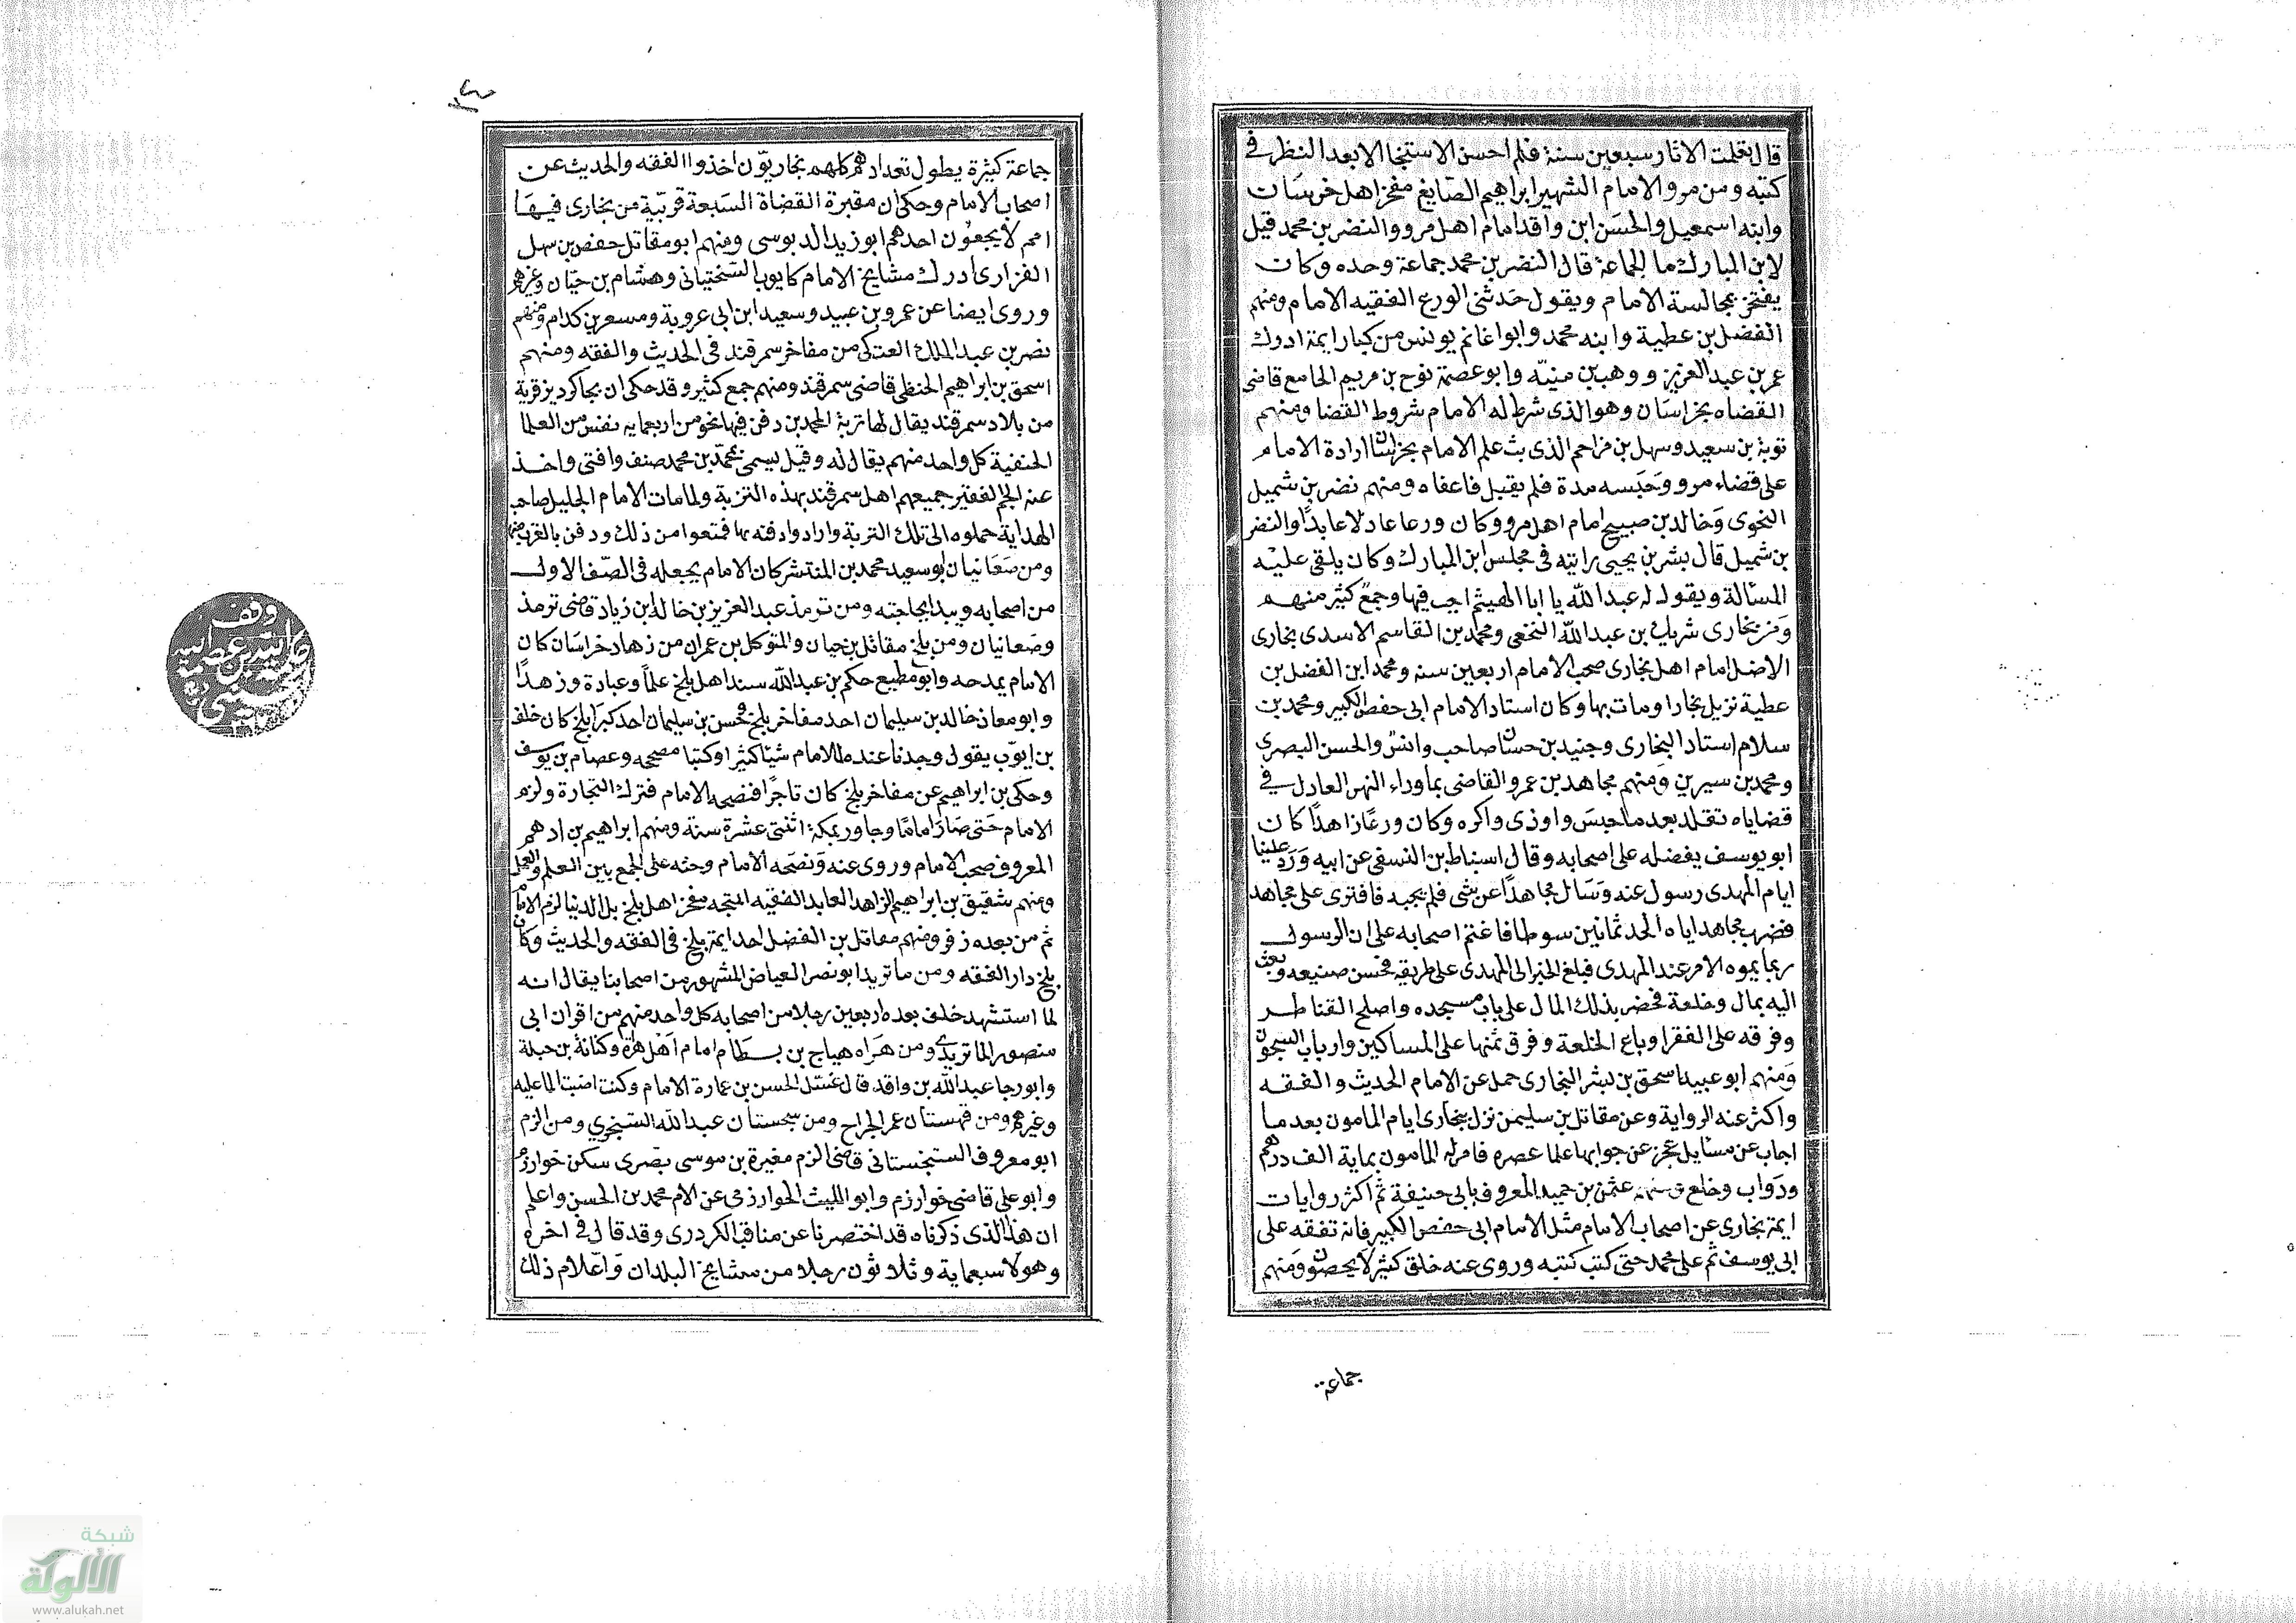 قال نقلت الاثار سبعين سنة فلم احسن الاستنجا الا بعد النظر في
كتبه ومن مرو الامام الشهير ابراهيم الصايغ مفخر اهل خرسان
وابنه اسمعيل والحسن ابن واقد امام اهل مرو والنضر بن محمد قيل
لابن المبارك ما الجماعة قال النضر بن محمد جماعة وحده وكان
يفتخر بمجالسة الامام ويقول حدثنى الورع الفقيه الامام ومنهم
الفضل بن عطية وابنه محمد وابوا غانم يونس من كبار ايمة ادرك
عمر بن عبد العزيز ووهب بن منبّه وابو عصمة نوح بن مريم الجامع قاضى
القضاه بخراسان وهو الذى شرط له الامام شروط القضا ومنهم
توبة بن سعيد وسهل بن مزاحم الذى بث علم الامام بخراسان ارادة الامام
على قضاء مرو وحبسه مدة فلم يقبل فاعفاه ومنهم نضر بن شميل
النحوى وخالد بن صبيح امام اهل مرو وكان ورعا عادلا عابدًا والنضر
بن شميل قال بشر بن يحيى رايته فى مجلس ابن المبارك وكان يلقى عليه
المسالة ويقول له عبد الله يا ابا الهيثم اجب فيها وجمع كثير منهم
ومن بخارى شريك بن عبد الله النخعى ومحمد بن القاسم الاسدى بخارى
الاصل امام اهل بخارى صحب الامام اربعين سنه ومحمد ابن الفضل بن
عطية نزيل بخارا ومات بها وكان استاد الامام ابى حفص الكبير ومحمد بن
سلام استاد البخارى وجنيد بن حسان صاحب وانس والحسن البصرى
ومحمد بن سيرين ومنهم مجاهد بن عمرو القاضى بماوراء النهر العادل في
قضاياه تقلد بعد ما حبس واوذى واكره وكان ورعًا زاهدًا كان
ابو يوسف يفضله على اصحابه وقال اسباط بن النسفى عن ابيه ورد علينا
ايام المهدى رسول عنه وسال مجاهدًا عن شى فلم يجبه فافترى على مجاهد
فضرب مجاهد اياه الحد ثمانين سوطا فاغتم اصحابه على ان الرسول
ربما يموه الامر عند المهدى فبلغ الخبر الى المهدى على طريقه فحسن صنيعه وبعث
اليه بمال وخلعة فحضر بذلك المال على باب مسجده واصلح القناطر
وفرقه على الفقرا وباع الخلعة وفرق ثمنها على المساكين وارباب السجون
ومنهم ابو عبيد اسحق بن بشر البخارى حمل عن الامام الحديث والفقه
واكثر عنه الرواية وعن مقاتل بن سليمن نزل بخارى ايام المامون بعد ما
اجاب عن مسايل عجز عن جوابها علما عصره فامر له المامون بماية الف درهم
ودواب وخلع ومنهم عثمن بن حميد المعروف بابى حنيفة ثم اكثر روايات
ايمة بخارى عن اصحاب الامام مثل الامام ابى حفص الكبير فانه تفقه على
ابى يوسف ثم على محمد حتى كتب كتبه وروى عنه خلق كثير لا يحصون ومنهم
جماعة
جماعة كثيرة يطول تعدادهم كلهم بخاريّون اخذوا الفقه والحديث عن
اصحاب الامام وحكى ان مقبرة القضاة السبعة قريبة من بخارى فيها
امم لا يجمعون احدهم ابو زيد الدبوسى ومنهم ابو مقاتل حفص بن سهل
الفزارى ادرك مشايخ الامام كايوب السختيانى وهشام بن حيان وغيرهم
وروى ايضا عن عمرو بن عبيد وسعيد ابن ابى عروبة ومسعر بن كدام ومنهم
نصر بن عبد الملك العتكى من مفاخر سمرقند فى الحديث والفقه ومنهم
اسحق بن ابراهيم الحنظلى قاضى سمرقند ومنهم جمع كثير وقد حكى ان بجاكرديز قرية
من بلاد سمرقند يقال لها تربة المحمدين دفن فيها نحو من اربعمايه نفس من العلما
الحنفية كل واحد منهم يقال له وقيل يسمى بمحمد بن محمد صنف وافتى واخذ
عنه الجم الغفير جميعهم اهل سمرقند بهذه التربة ولما مات الامام الجليل صاحب
الهداية حملوه الى تلك التربة وارادوا دفنه بها فمنعوا من ذلك ودفن بالقرب منها
ومن صغانيان ابو سعيد محمد بن المنتشر كان الامام يجعله فى الصّف الاول
من اصحابه ويبدا بحاجته ومن ترمذ عبد العزيز بن خالد ابن زياد قاضى ترمذ
وصغانيان ومن بلخ مقاتل بن حيان والمتوكل بن عمران من زهاد خراسان كان
الامام يمدحه وابو مطيع حكم بن عبد الله سند اهل بلخ علماً وعبادة وزهدًا
وابو معاذ خالد بن سليمان احد مفاخر بلخ وحسن بن سليمان احد كبرا بلخ كان خلف
بن ايوّب يقول وجدنا عنده للامام شيًا كثيرا وكتبا مصححه وعصام بن يوسف
وحكى بن ابراهيم عن مفاخر بلخ كان تاجرًا فنصحه الامام فترك التجارة ولزم
الامام حتى صار امامًا وجاور بمكة اثنتى عشرة سنة ومنهم ابراهيم بن ادهم
المعروف صحب الامام وروى عنه ونصحه الامام وحثه على الجمع بين العلم والعمل
ومنهم شقيق بن ابراهيم الزاهد العابد الفقيه المتجه مفخر اهل بلخ بل الدنيا لزم الامام
ثم من بعده زفر ومنهم مقاتل بن الفضل احد ايمة بلخ فى الفقه والحديث وكان
بلخ دار الفقه ومن ماتريد ابو نصر العياض المشهور من اصحابنا يقال انه
لما استشهد خلف بعده اربعين رجلا من اصحابه كل واحد منهم من اقران ابى
منصور الماتريدى ومن هراه هياج بن بسطام امام اهل هراة وكنانة بن جبلة
وابو رجا عبد الله بن واقد قال غسّل الحسن بن عمارة الامام وكنت اصب الما عليه
وغيرهم ومن قهستان عمر الجراح ومن سجستان عبد الله السنجرى ومن الزم
ابو معروف السنجستانى قاضى الزم مغيرة بن موسى بصرى سكن خوارزم
وابو على قاضى خوارزم وابو الليث الخوارزمى عن الام محمد بن الحسن واعلم
ان هذا الذى ذكرناه قد اختصرنا عن مناقب الكردرى وقد قال فى اخره
وهولا سبعماية وثلاثون رجلا من مشايخ البلدان واعلام ذلك
وقف
شبكة
الألوكة
www.alukah.net